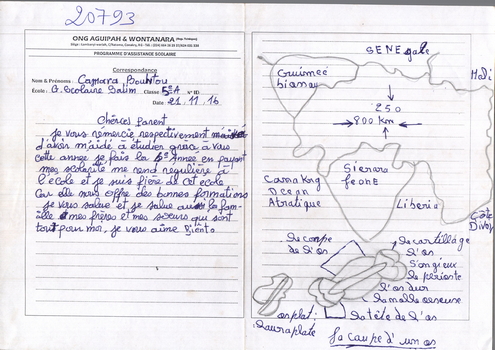 20793
ONG AGUIPAH & WONTANARA
PROGRAMME D'ASSISTANCE SCOLAIRE
Correspondance
Nom & Prénoms : Camara Boubtou
École : G. Scolaire Salim Classe 5ªA N° ID
Date : 21.11.16
Chèrces Parent
je vous rémercie respectivement
d'avoir m'aidé à étudier grace à vous
cette année je fais la 5ᵉ Année en payant
mes scolarité me rend regulière à
l'école et je suis fière de cet école
Car elle nous offre des bonnes formations
je vous salue et je salue aussi la fam-
ille mes frères et mes sœurs qui sont
tout pour moi, je vous aime Biento
SENEgale
Guineé
bissau
Mali
250
800 km
Sierare
Leone
Ocean
Atratique
Liberia
Côte
Divoi
la coupe
de l'os
le cartillage
l'os
Songieux
le perioste
l'os dur
la molle osseuse
la tête de l'os
os plat :
la coupe d'un os